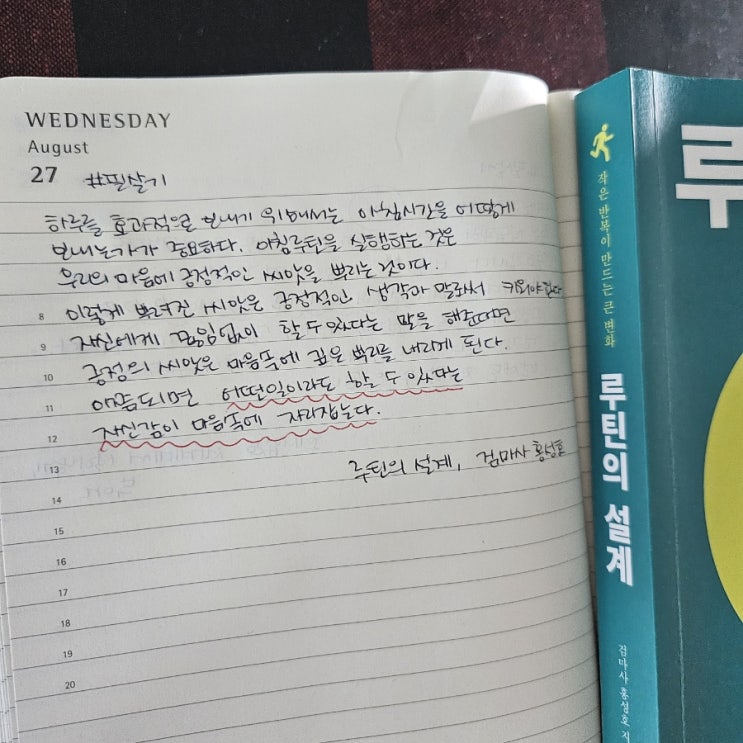 WEDNESDAY
August
27 #필살기
하루를 효과적으로 보내기 위해서는 아침시간을 어떻게
보내는가가 중요하다. 아침루틴을 실행하는 것은
우리의 마음에 긍정적인 씨앗을 뿌리는 것이다.
8 이렇게 뿌려진 씨앗은 긍정적인 생각과 말로써 키워야한다
9 자신에게 끊임없이 할 수 있다는 말을 해준다면
10 긍정의 씨앗은 마음속에 깊은 뿌리를 내리게 된다.
11 이쯤되면 어떤일이라도 할 수 있다는
12 자신감이 마음속에 자리잡는다.
13 루틴의 설계, 검마사 홍성호
14
15
16
17
18
19
20
루
작은 반복이 만드는 큰 변화
루틴의 설계
검마사 홍성호 지